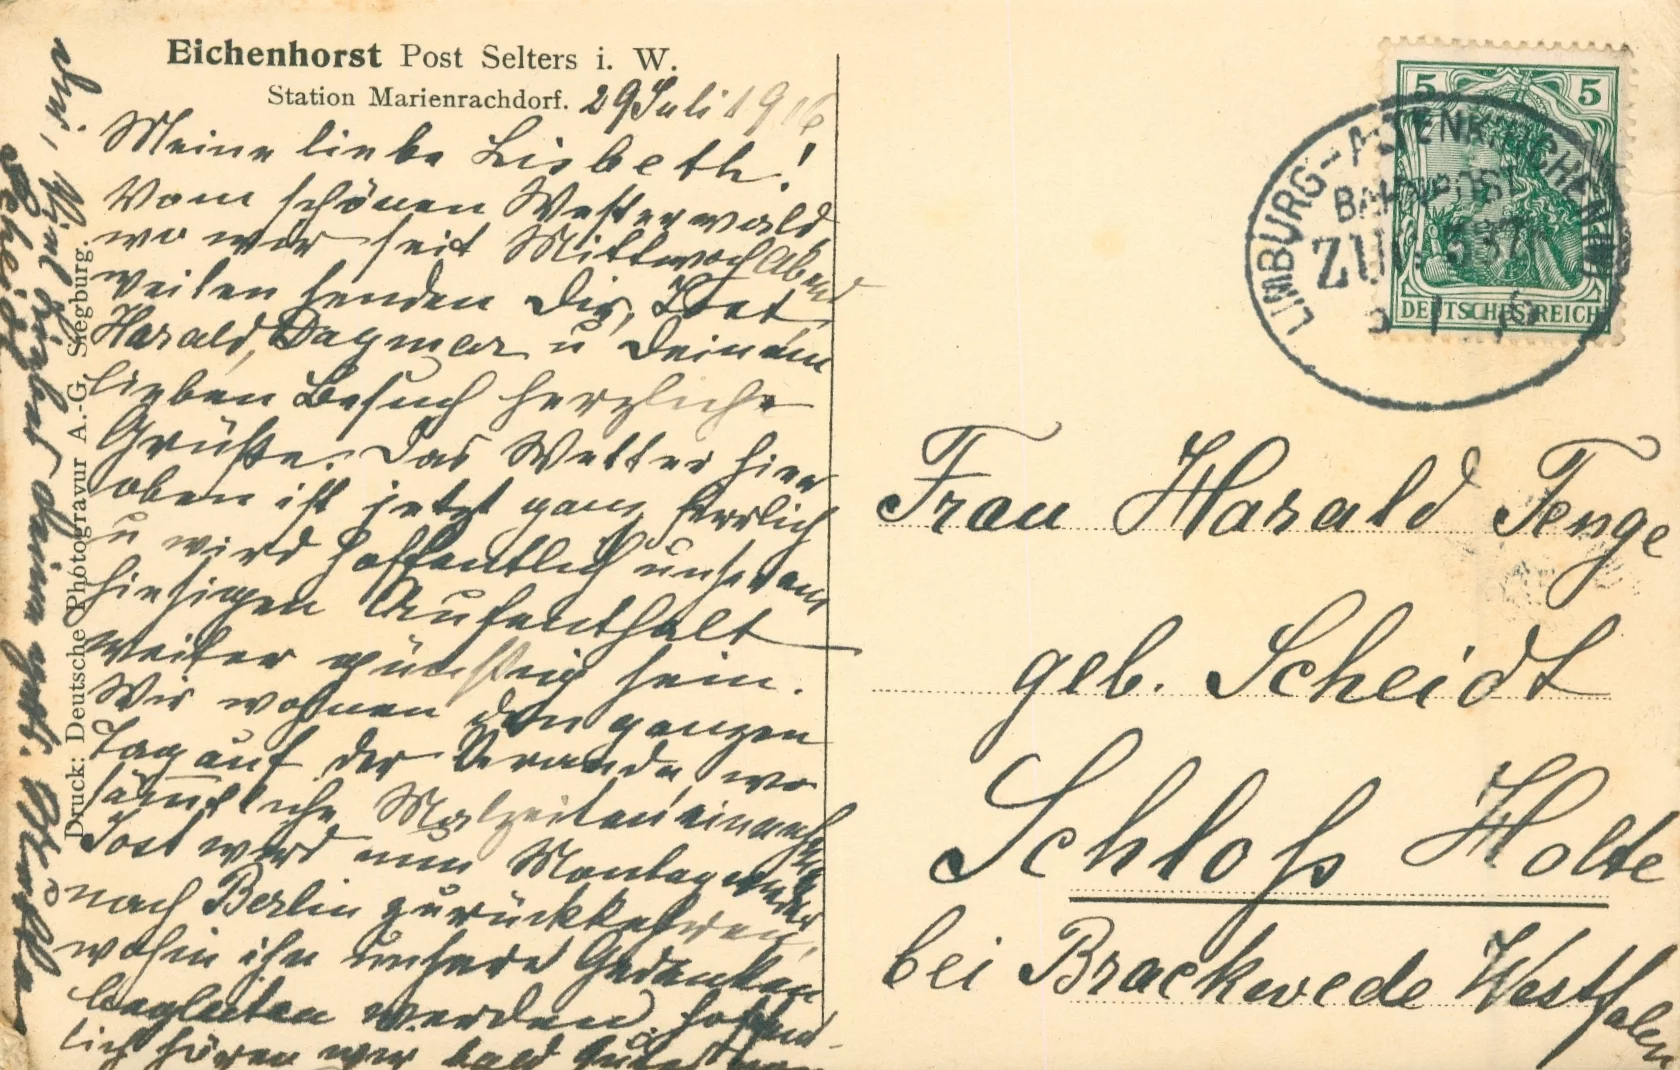 Eichenhorst Post Selters i. W.
Station Marienrachdorf. 29 Juli 1916
Meine liebe Lisbeth!
Vom schönen Westerwald,
wo wir seit Mittwoch Abend
weilen senden Dir, Jost,
Harald, Dagmar u Deinem
lieben Besuch herzliche
Grüße. Das Wetter hier
oben ist jetzt ganz herrlich
u wird hoffentlich unserem
hiesigen Aufenthalt
weiter günstig sein.
Wir wohnen den ganzen
Tag auf der Veranda, wo
sämtliche Malzeiten
Jost wird nun Montag wieder
nach Berlin zurückkehren,
wohin ihn unsere Gedanken
begleiten werden. Hoffent-
lich hören wir bald gutes von
ihm, Viel
Scheidt
Druck: Deutsche Photogravur A.-G. Siegburg.
5 5
DEUTSCHES REICH
LIMBURG-ALTENKIRCHEN
BAHNPOST
ZUG
Frau Harald Tenge
geb. Scheidt
Schloß Holte
bei Brackwede Westfalen